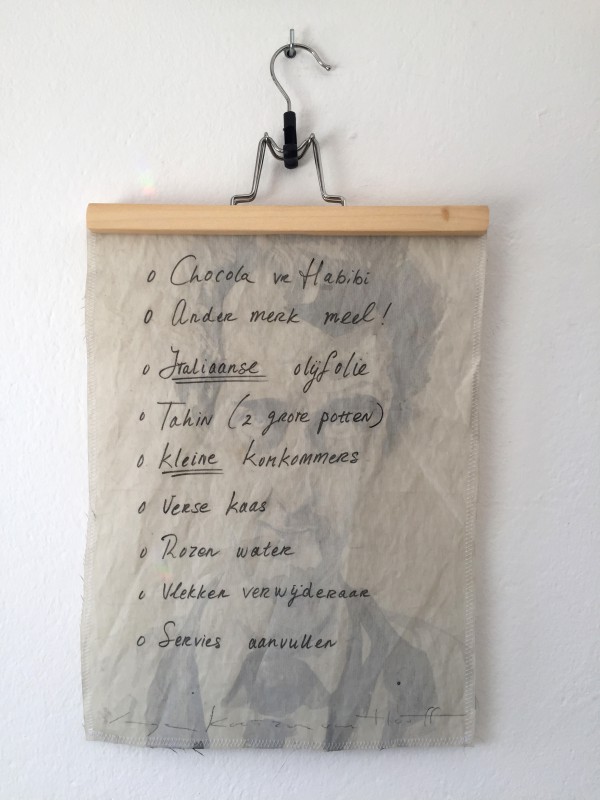 o Chocola vr Habibi
o Ander merk meel!
o Italiaanse olijfolie
o Tahin (2 grote potten)
o Kleine komkommers
o Verse kaas
o Rozen water
o Vlekken verwijderaar
o Servies aanvullen